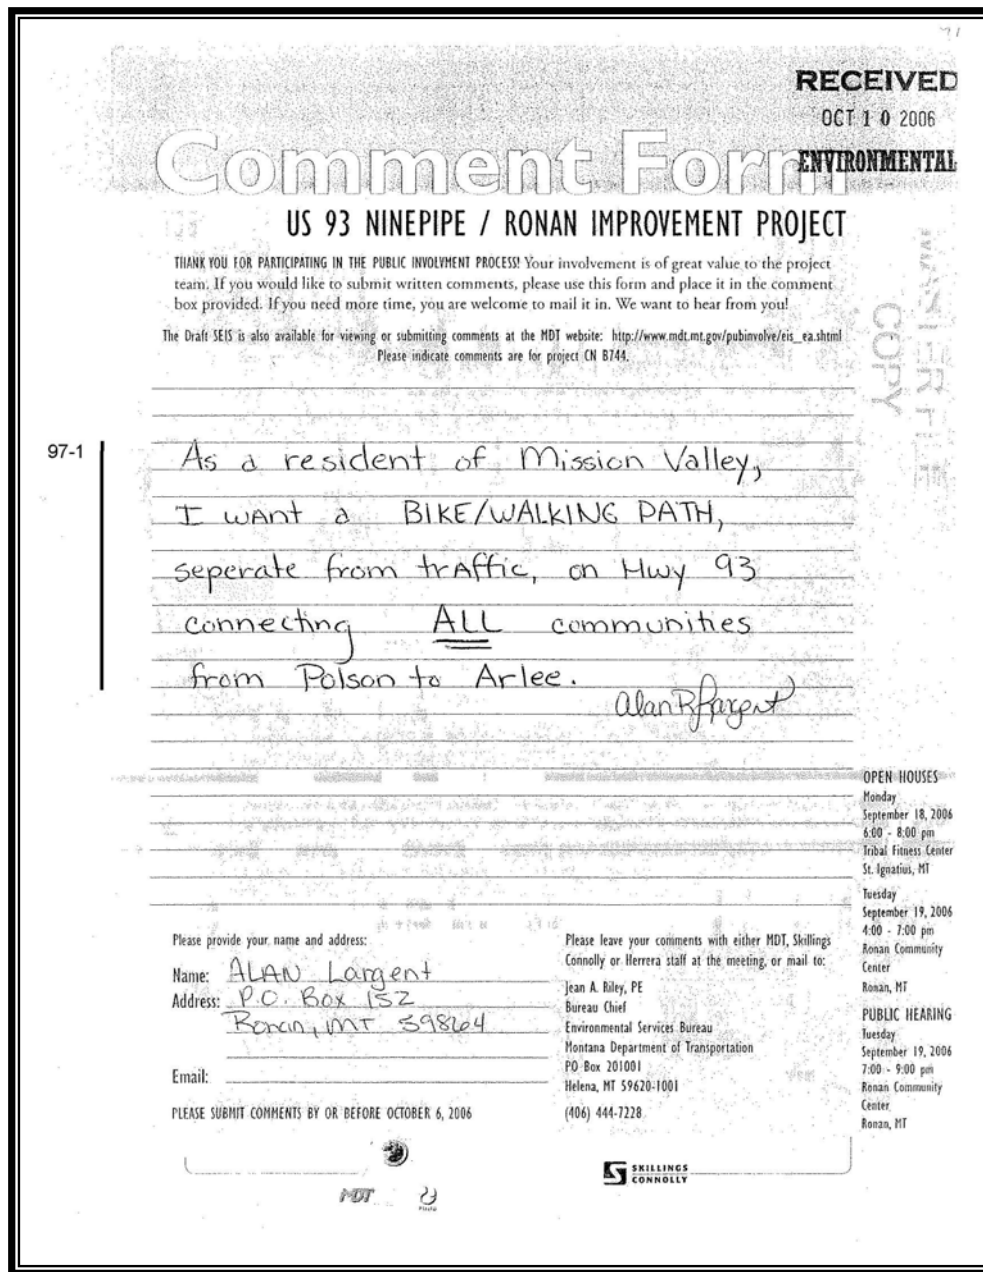 RECEIVED
OCT 10 2006
ENVIRONMENTAL
Comment Form
US 93 NINEPIPE / RONAN IMPROVEMENT PROJECT
THANK YOU FOR PARTICIPATING IN THE PUBLIC INVOLVMENT PROCESS! Your involvement is of great value to the project
team. If you would like to submit written comments, please use this form and place it in the comment
box provided. If you need more time, you are welcome to mail it in. We want to hear from you!
The Draft SEIS is also available for viewing or submitting comments at the MDT website: http://www.mdt.mt.gov/pubinvolve/eis_ea.shtml
Please indicate comments are for project CN B744.
MASTER FILE
COPY
97-1
As a resident of Mission Valley,
I want a BIKE/WALKING PATH,
seperate from traffic, on Hwy 93
connecting ALL communities
from Polson to Arlee.
Alan R Largent
OPEN HOUSES
Monday
September 18, 2006
6:00 - 8:00 pm
Tribal Fitness Center
St. Ignatius, MT
Tuesday
September 19, 2006
4:00 - 7:00 pm
Ronan Community
Center
Ronan, MT
PUBLIC HEARING
Tuesday
September 19, 2006
7:00 - 9:00 pm
Ronan Community
Center
Ronan, MT
Please provide your name and address:
Name: ALAN Largent
Address: P.O. Box 152
Ronan, MT 59864
Email:
PLEASE SUBMIT COMMENTS BY OR BEFORE OCTOBER 6, 2006
Please leave your comments with either MDT, Skillings
Connolly or Herrera staff at the meeting, or mail to:
Jean A. Riley, PE
Bureau Chief
Environmental Services Bureau
Montana Department of Transportation
PO Box 201001
Helena, MT 59620-1001
(406) 444-7228
MDT
SKILLINGS
CONNOLLY